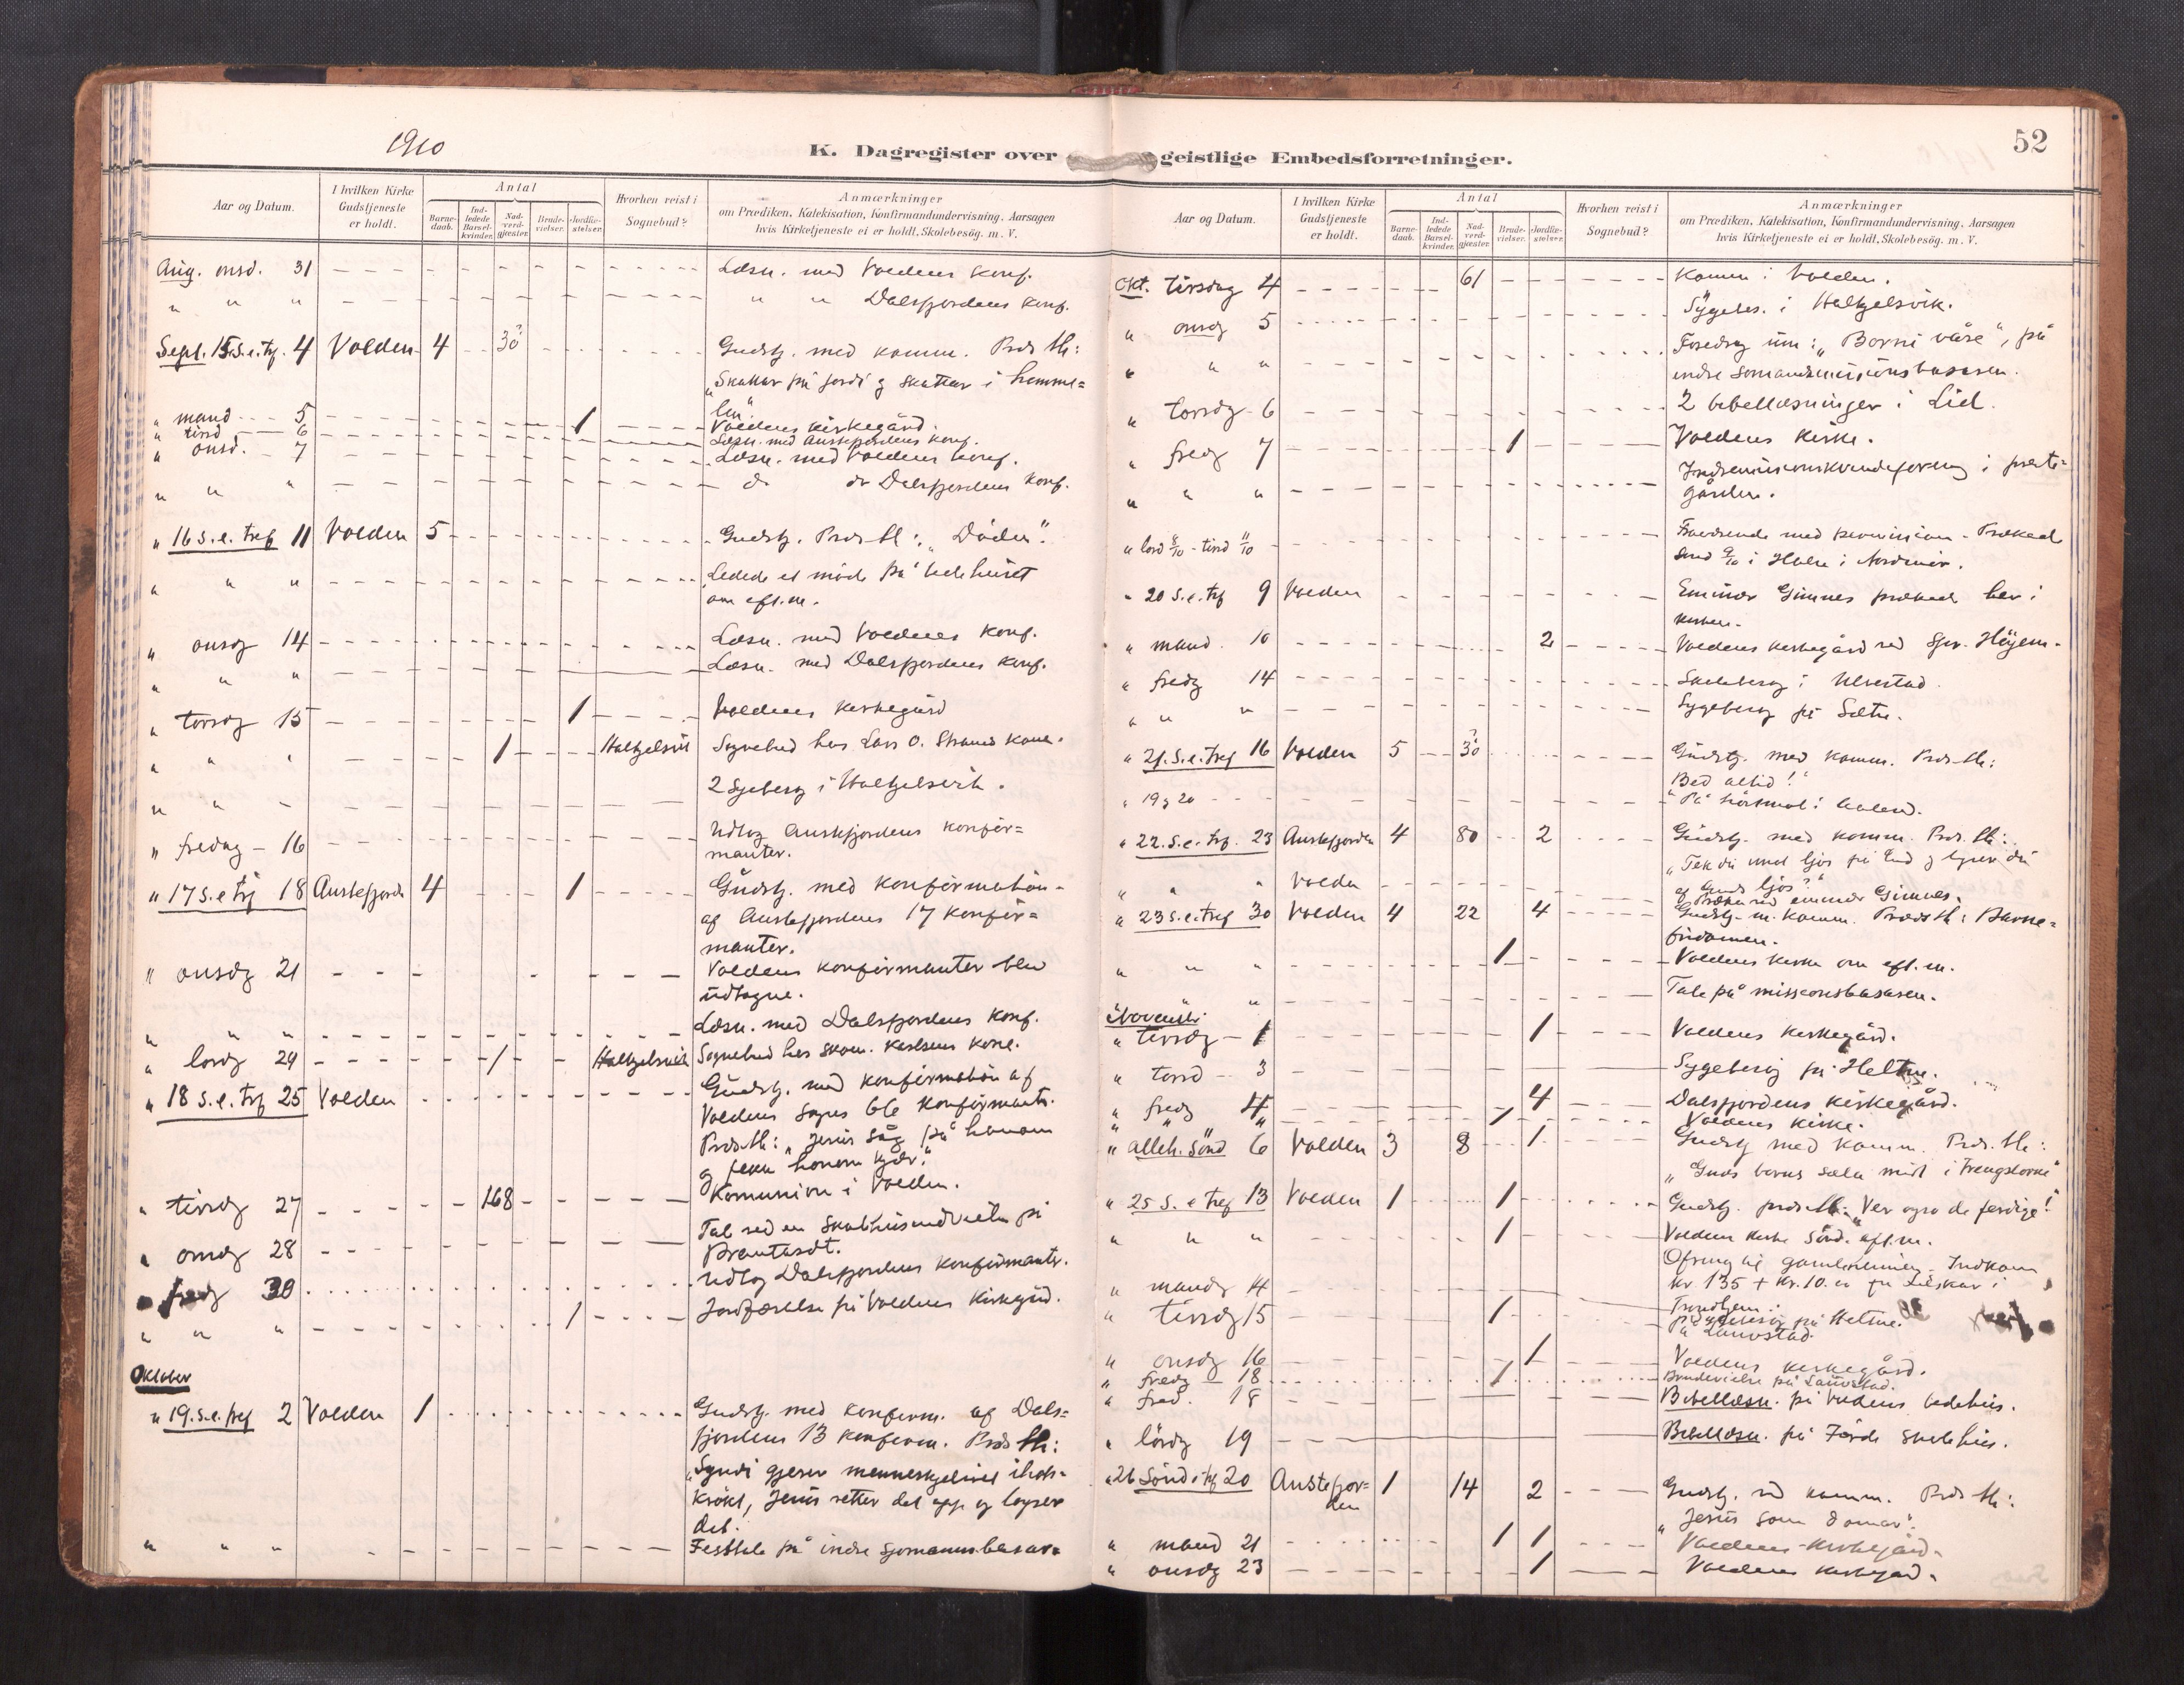 1910
52
K. Dagregister over geistlige Embedsforretninger.
Aar og Datum.
I hvilken Kirke Gudstjeneste er holdt.
Antal
Barne-daab.
Ind-ledede Barsel-kvinder.
Nad-verd-gjæster.
Brude-vielser.
Jordfæ-stelser.
Hvorhen reist i Sognebud?
Anmærkninger
om Prædiken, Katekisation, Konfirmandundervisning, Aarsagen
hvis Kirketjeneste ei er holdt, Skolebesög. m. V.
Aug. onsd. 31 Læsn. med Voldens konf.
" " " " " Dalsfjordens konf.
Sept. 15 S.e.trf. 4 Volden 4 30 Gudstj. med komm. Præd. th:
"Skattar på jordi og skattar i himme=
len."
" mand 5 1 Voldens kirkegård.
" tirsd 6 Læsn. med Austefjordens konf.
" onsd. 7 Læsn. med Voldens konf.
" " " do do Dalsfjordens konf.
" 16 S.e.tref 11 Volden 5 Gudstj. Præd. th: "Döden".
" " " Ledede et möde på bedehuset
om eft.m.
" onsdg 14 Læsn. med Voldens konf.
" " " Læsn. med Dalsfjordens konf.
" torsdg 15 1 Voldens kirkegård
" " " 1 Halkjelsvik Sognebud hos Lars O. Strands kone.
" " " 2 Sygebesög i Halkjelsvik.
" fredag 16 Udtog Austefjordens konfir=
manter.
" 17 S.e.trf 18 Austefjorden 4 1 Gudstj. med konfirmation
af Austefjordens 17 konfir=
manter.
" onsdg 21 Voldens konfirmanter blev
udtagne.
" " " Læsn. med Dalsfjordens konf.
" lördg 24 1 Halkjelsvik Sognebud hos skom. Karlsens kone.
" 18 S.e.trf 25 Volden Gudstj. med konfirmation af
Voldens Sogns 66 konfirmantr.
Præd. th: "Jesus såg på honom
og fekk honom kjær."
" tirsdg 27 168 Komunion i Volden.
" onsdg 28 Tale ved en Skolehusindvielse på
" fredg 30 Udtog Dalsfjordens konfirmantr.
" " " 1 Jordfæstelse på Voldens Kirkegård.
Oktober
" 19. S.e.tref 2 Volden 1 Gudstj. med konfirm. af Dals=
fjordens 13 konfirm. Præd. th:
"Syndi gjerer menneskjelivet ihop=
krökt, Jesus retter det opp og löyser
det.
" " " Festtale på indre sjomannsbasar=
Okt. tirsdag 4 61 Komm i Volden.
" onsdg 5 Sygebes. i Halkjelsvik.
" " " Foredrag um: "Borni våre", på
indre somandsmisionsbasaren.
" torsdg 6 2 bibellæsninger i Lid.
" fredg 7 1 Voldens kirke.
" " " Indremisionskvindeforening i præste=
gården.
" lörd 8/10 - tirsd 11/10 Fraværende med permission. Prækede
Sönd 9/10 i Halse i Nordmör.
" 20 S.e.trf 9 Volden Eminar Gimnes prækede her i
kirken.
" mand. 10 2 Voldens kirkegård ved Spr. Höyem.
" fredg 14 Skolebesög i Ulvestad.
" " " Sygebesög på Sætre.
" 21. S.e.tref 16 Volden 5 30 Gudstj. med komm. Præd. th:
Bed altid!"
" 19 g 20
" 22. S.e.trf. 23 Austefjorden 4 80 2 Gudstj. med komm. Præd. th:
"Tek du imot ljos frå Gud og lyser du
af Guds ljos?"
" " " Volden Præken ved eminar Gimnes.
" 23 S.e.tref 30 Volden 4 22 4 Gudstj. m. komm. Præd. th: Barne=
fridomen.
" " " 1 Voldens kirke om eft.m.
" Tale på missionsbasaren.
November
" tirsdg 1 1 Voldens kirkegård.
" torsd 3 Sygebesög på Heltne.
" fredg 4 4 Dalsfjordens kirkegård.
" " " 1 Voldens kirke.
" Alleh. Sönd 6 Volden 3 8 1 Gudstj med komm. Præd. th:
"Guds borns sæla midt i trengslorne"
" 25 S. e tref 13 Volden 1 1 Gudstj. præd. th. "Ver ogso de ferdige!"
" " " 1 Voldens kirke Sönd. eft.m.
Indkom
kr 135 + kr. 10.
" mandg 14
Trondhjem.
" tirsdg 15 1 Sygebesög på Heltne.
" onsdg 16 1 Voldens kirkegård.
" fredg 18 1 Brudevielse på Lauvstad.
" fred. 18 Bibellæsn. på Voldens bedehus.
" lördg 19 Bibellæsn. på Förde Skolehus.
" 26 Sönd e trf 20 Austefjor=
den 1 14 2 Gudstj. ved komm. Præd. th:
"Jesus som domar".
" mand 21 1 1 Voldens Kirkegård.
" onsdg 23 1 Voldens kirkegård.